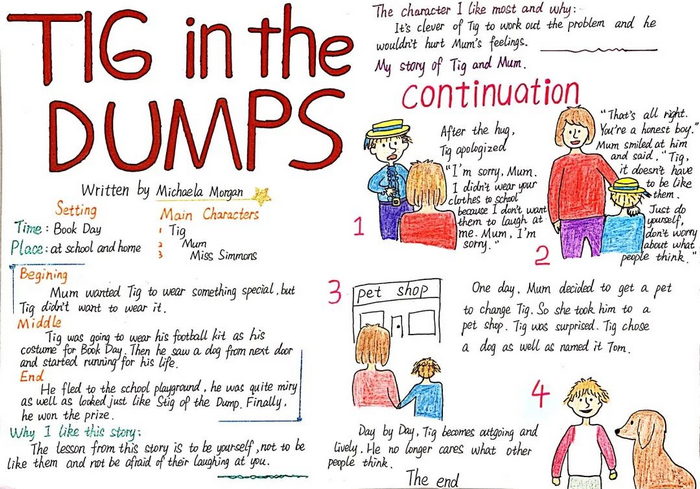 TIG in the
DUMPS
Written by Michaela Morgan
Setting
Time: Book Day
Place: at school and home
Main Characters
1 Tig
2 Mum
3 Miss Simmons
Begining
Mum wanted Tig to wear something special, but
Tig didn't want to wear it.
Middle
Tig was going to wear his football kit as his
costume for Book Day. Then he saw a dog from next door
and started running for his life.
End
He fled to the school playground, he was quite miry
as well as looked just like Stig of the Dump. Finally,
he won the prize.
Why I like this story:
The lesson from this story is to be yourself, not to be
like them and not be afraid of their laughing at you.
The character I like most and why:
It's clever of Tig to work out the problem and he
wouldn't hurt Mum's feelings.
My story of Tig and Mum.
continuation
1
After the hug,
Tig apologized
"I'm sorry, Mum.
I didn't wear your
clothes to school
because I don't want
them to laugh at
me. Mum, I'm
sorry."
2
"That's all right.
You're a honest boy."
Mum smiled at him
and said, "Tig,
it doesn't have
to be like
them.
Just do
yourself,
don't worry
about what
people think."
3
pet shop
One day, Mum decided to get a pet
to change Tig. So she took him to a
pet shop. Tig was surprised. Tig chose
a dog as well as named it Tom.
4
Day by Day, Tig becomes outgoing and
lively. He no longer cares what other
people think.
The end